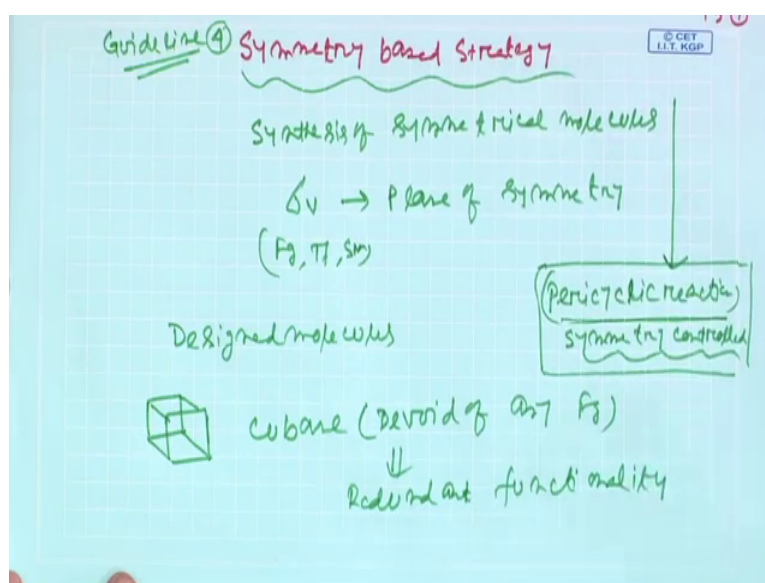 Guideline ④ Symmetry based Strategy
© CET
I.I.T. KGP
Synthesis of Symmetrical molecules
σv → Plane of Symmetry
(Fg, TF, SM)
(Pericyclic reaction)
Symmetry controlled
Designed molecules
Cubane (Devoid of any Fg)
⇓
Redundant functionality